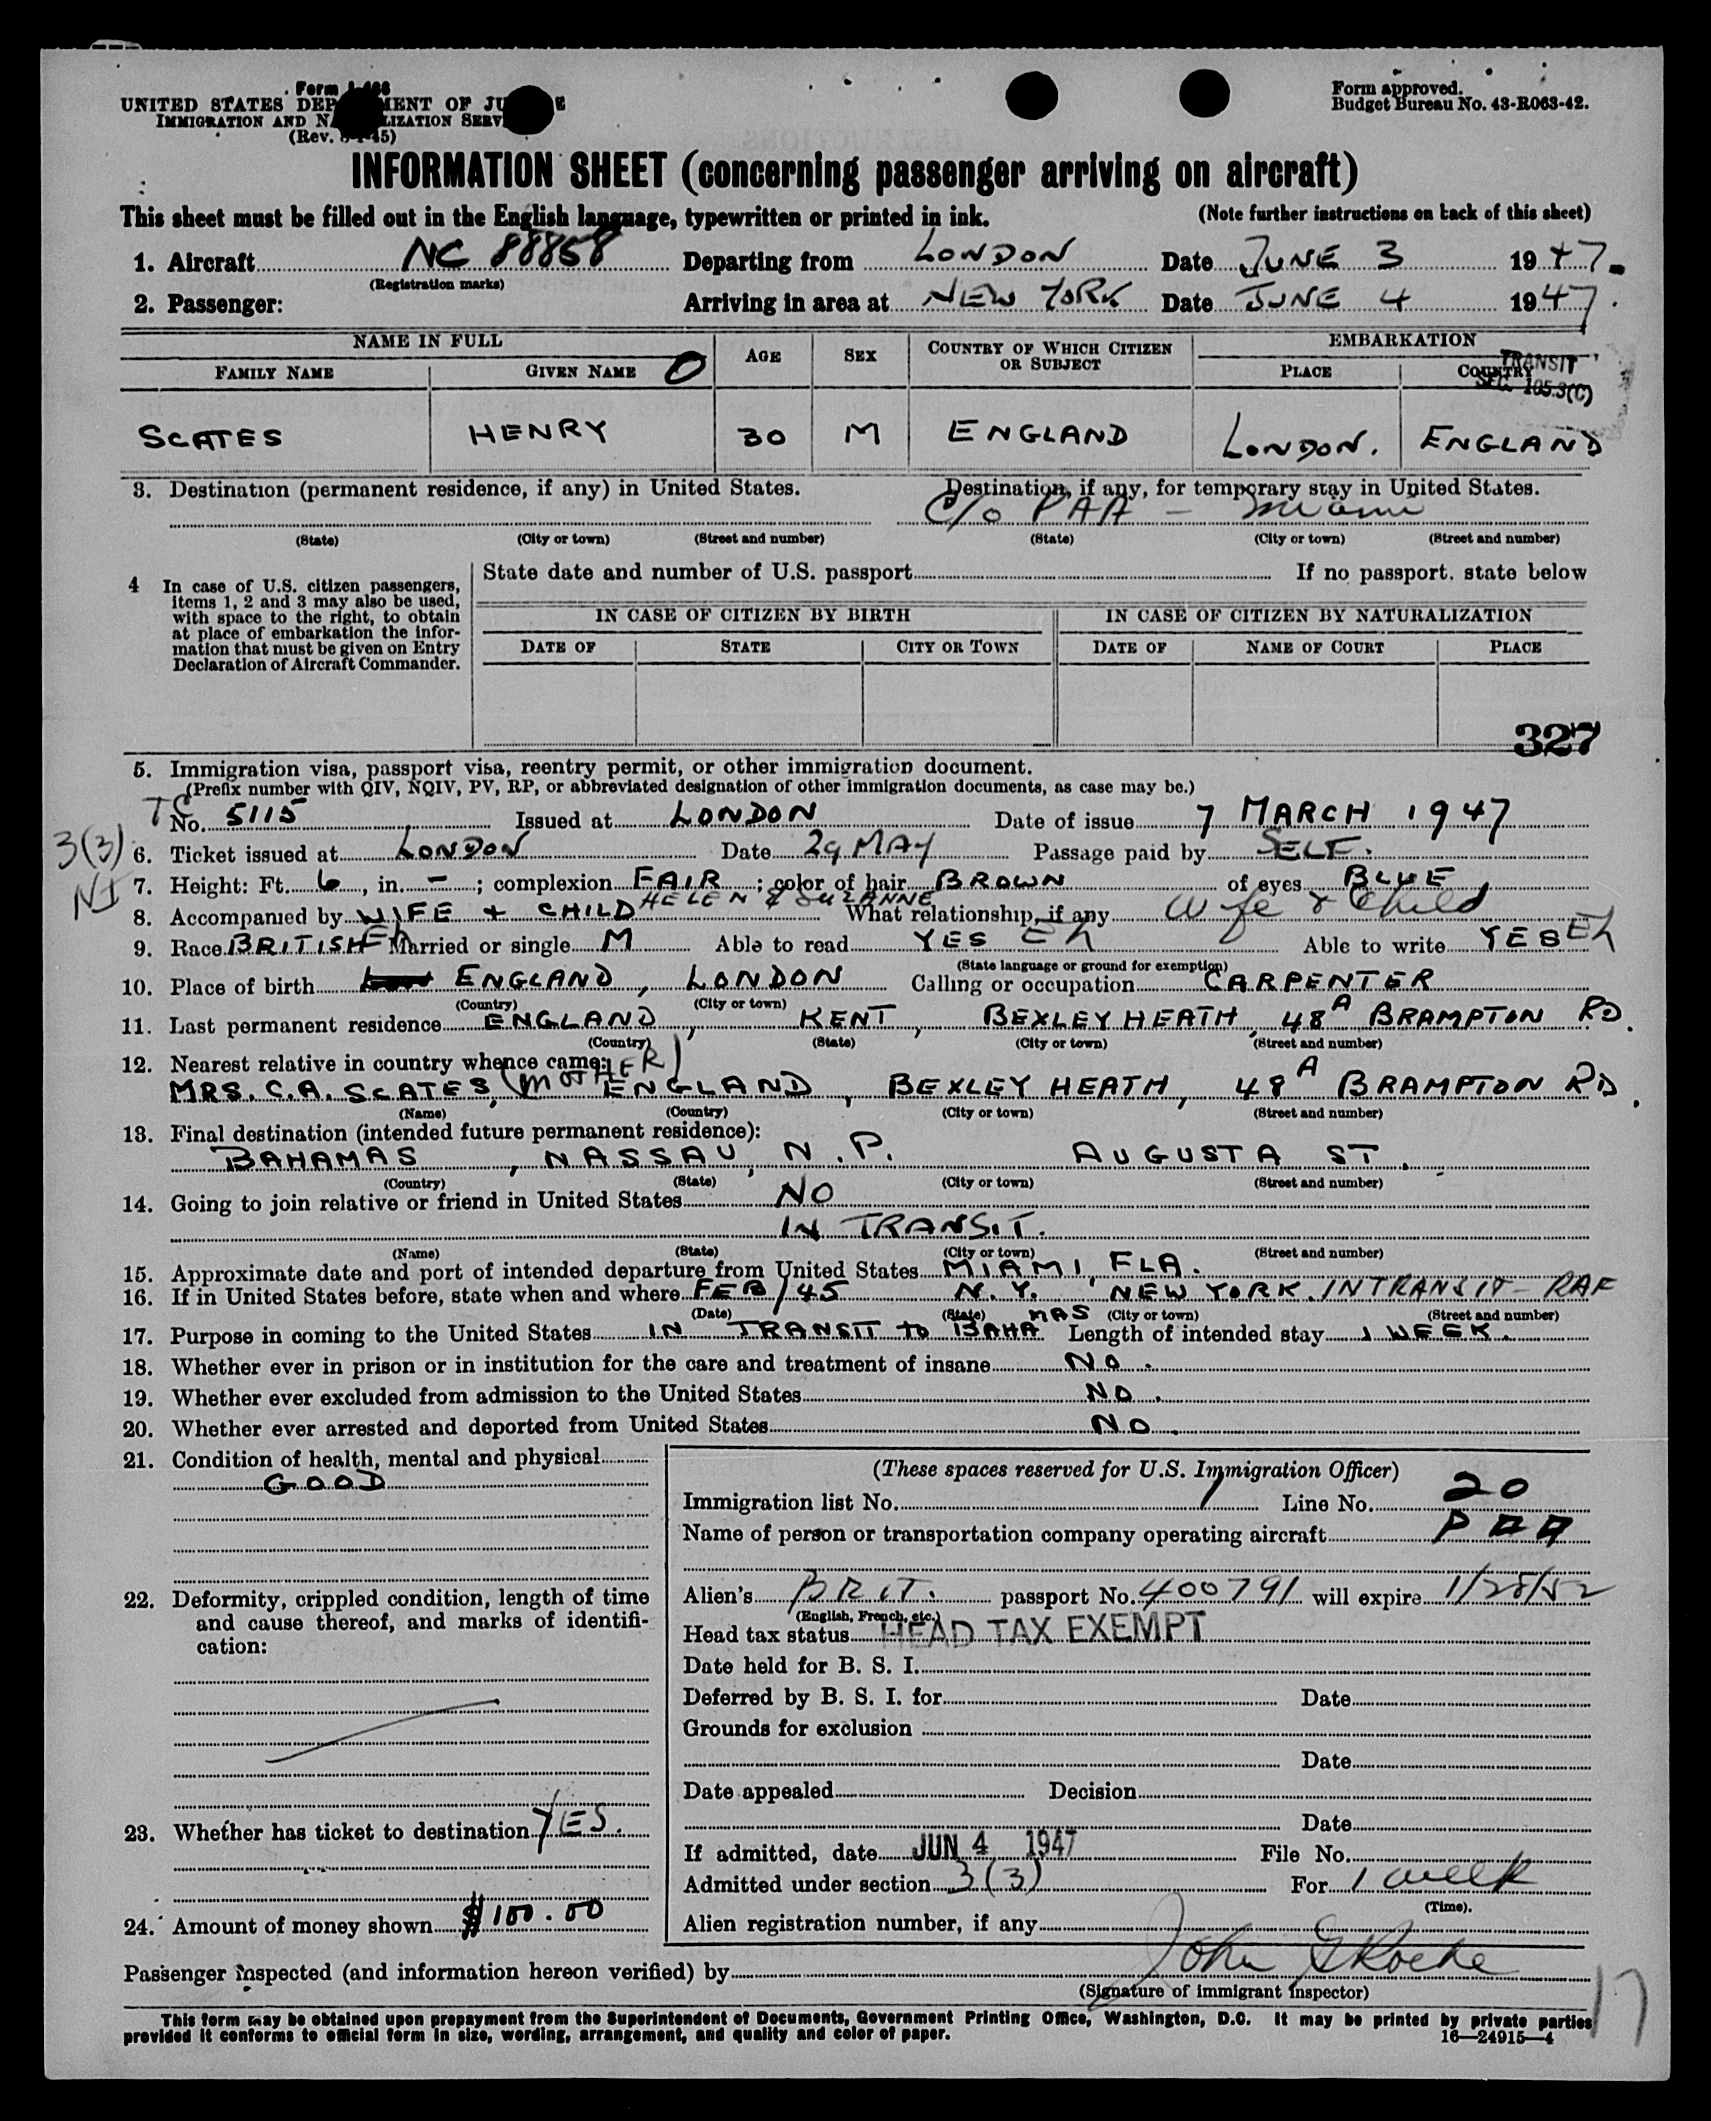 Form
UNITED STATES DEPARTMENT OF JUSTICE
IMMIGRATION AND NATURALIZATION SERVICE
(Rev. 45)
Form approved.
Budget Bureau No. 43-R063-42.
INFORMATION SHEET (concerning passenger arriving on aircraft)
This sheet must be filled out in the English language, typewritten or printed in ink. (Note further instructions on back of this sheet)
1. Aircraft NC 88858 Departing from LONDON Date JUNE 3 1947.
(Registration marks)
2. Passenger: Arriving in area at NEW YORK Date JUNE 4 1947.
NAME IN FULL AGE SEX COUNTRY OF WHICH CITIZEN OR SUBJECT EMBARKATION
FAMILY NAME GIVEN NAME O PLACE COUNTRY
TRANSIT
SEC. 105.3(C)
SCATES HENRY 30 M ENGLAND LONDON. ENGLAND
3. Destination (permanent residence, if any) in United States. Destination, if any, for temporary stay in United States.
C/o PAA - Miami
(State) (City or town) (Street and number) (State) (City or town) (Street and number)
4 In case of U.S. citizen passengers, items 1, 2 and 3 may also be used, with space to the right, to obtain at place of embarkation the information that must be given on Entry Declaration of Aircraft Commander.
State date and number of U.S. passport If no passport. state below
IN CASE OF CITIZEN BY BIRTH IN CASE OF CITIZEN BY NATURALIZATION
DATE OF STATE CITY OR TOWN DATE OF NAME OF COURT PLACE
327
5. Immigration visa, passport visa, reentry permit, or other immigration document.
(Prefix number with QIV, NQIV, PV, RP, or abbreviated designation of other immigration documents, as case may be.)
TC
No. 5115 Issued at LONDON Date of issue 7 MARCH 1947
3(3)
6. Ticket issued at LONDON Date 29 MAY Passage paid by SELF.
NI
7. Height: Ft. 6, in. -; complexion FAIR; color of hair BROWN of eyes BLUE
8. Accompanied by WIFE + CHILD HELEN & SUZANNE What relationship, if any Wife & Child
9. Race BRITISH Eh Married or single M Able to read YES Eh Able to write YES Eh
(State language or ground for exemption)
10. Place of birth ENGLAND, LONDON Calling or occupation CARPENTER
(Country) (City or town)
11. Last permanent residence ENGLAND, KENT, BEXLEY HEATH, 48A BRAMPTON RD.
(Country) (State) (City or town) (Street and number)
12. Nearest relative in country whence came:
MRS. C.A. SCATES, (MOTHER) ENGLAND, BEXLEY HEATH, 48A BRAMPTON RD.
(Name) (Country) (City or town) (Street and number)
13. Final destination (intended future permanent residence):
BAHAMAS, NASSAU, N.P. AUGUSTA ST.
(Country) (State) (City or town) (Street and number)
14. Going to join relative or friend in United States NO
IN TRANSIT.
(Name) (State) (City or town) (Street and number)
15. Approximate date and port of intended departure from United States MIAMI, FLA.
16. If in United States before, state when and where FEB/45 N.Y. NEW YORK. IN TRANSIT - RAF
(Date) (State) (City or town) (Street and number)
17. Purpose in coming to the United States IN TRANSIT to BAHAMAS Length of intended stay 1 WEEK.
18. Whether ever in prison or in institution for the care and treatment of insane No.
19. Whether ever excluded from admission to the United States No.
20. Whether ever arrested and deported from United States No.
21. Condition of health, mental and physical
GOOD
22. Deformity, crippled condition, length of time and cause thereof, and marks of identification:
23. Whether has ticket to destination YES.
24. Amount of money shown $100.00
(These spaces reserved for U.S. Immigration Officer)
Immigration list No. 1 Line No. 20
Name of person or transportation company operating aircraft PAA
Alien's BRIT. passport No. 400791 will expire 1/28/52
(English, French, etc.)
Head tax status HEAD TAX EXEMPT
Date held for B. S. I.
Deferred by B. S. I. for Date
Grounds for exclusion
Date
Date appealed Decision
Date
If admitted, date JUN 4 1947 File No.
Admitted under section 3(3) For 1 week
(Time).
Alien registration number, if any
Passenger inspected (and information hereon verified) by John G Roche
(Signature of immigrant inspector)
17
This form may be obtained upon prepayment from the Superintendent of Documents, Government Printing Office, Washington, D.C. It may be printed by private parties
provided it conforms to official form in size, wording, arrangement, and quality and color of paper. 16—24915—4